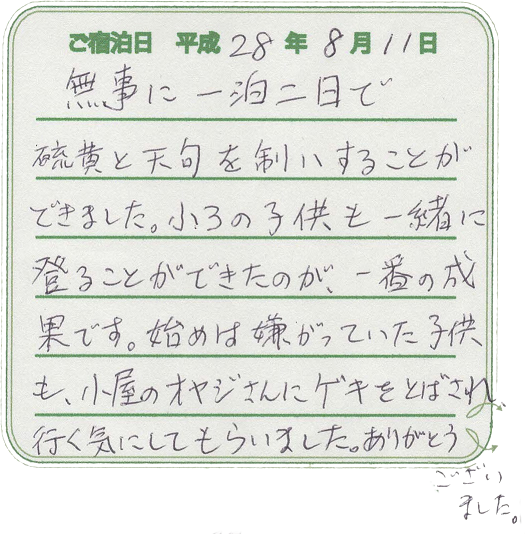 ご宿泊日 平成 28 年 8 月 11 日
無事に一泊二日で
硫黄と天句を制ハすることが
できました。小3の子供も一緒に
登ることができたのが、一番の成
果です。始めは嫌がっていた子供
も、小屋のオヤジさんにゲキをとばされ、
行く気にしてもらいました。ありがとう
ござい
ました。